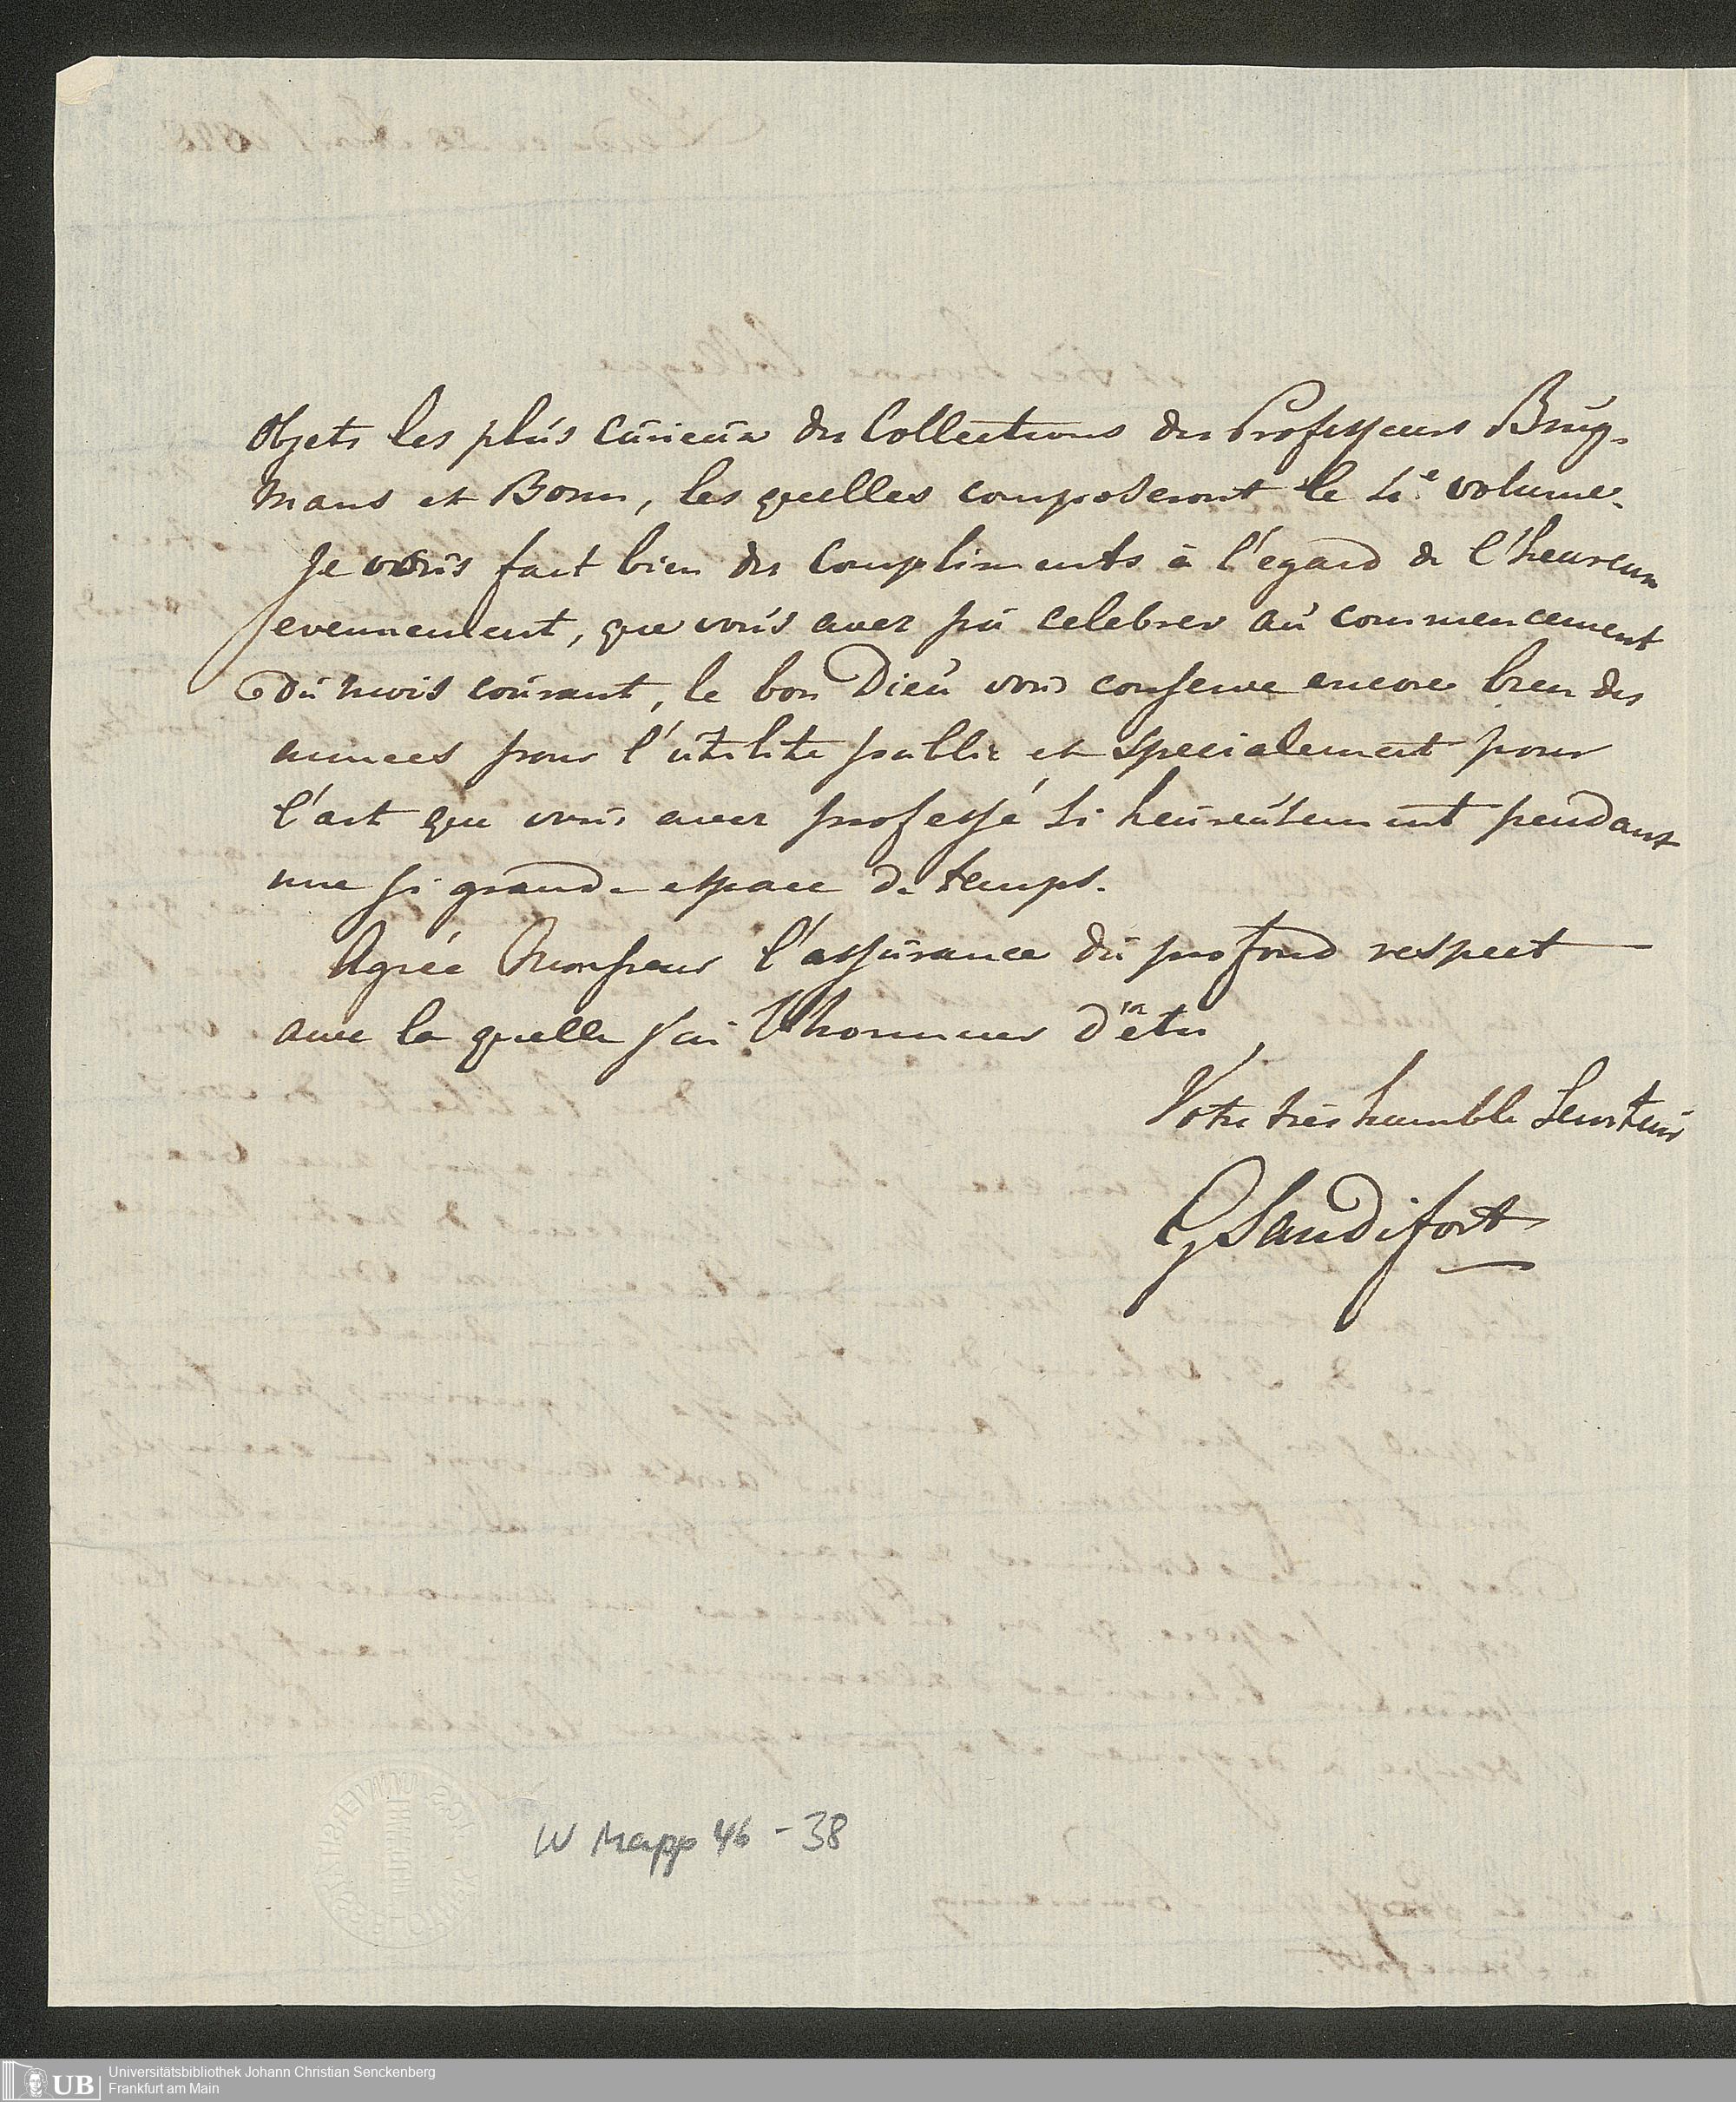 objets les plus curieux des Collections des Professeurs Brug-
mans et Bonn, les quelles composeront le 4.e volume.
Je vous fait bien des Compliments à l'egard de l'heureux
evennement, que vous avez pu celebrer au commencement
du mois courant, le bon Dieu vous conserve encore bien des
annees pour l'utilite public et specialement pour
l'art que vous avez professé si heureusement pendant
une si grande espace de temps.
Agréé Monsieur l'assurance du profond respect
avec la quelle j'ai l'honneur d'etre,
Votre très humble Serviteur
G Sandifort
W Mapp 46 - 38
UB Universitätsbibliothek Johann Christian Senckenberg
Frankfurt am Main